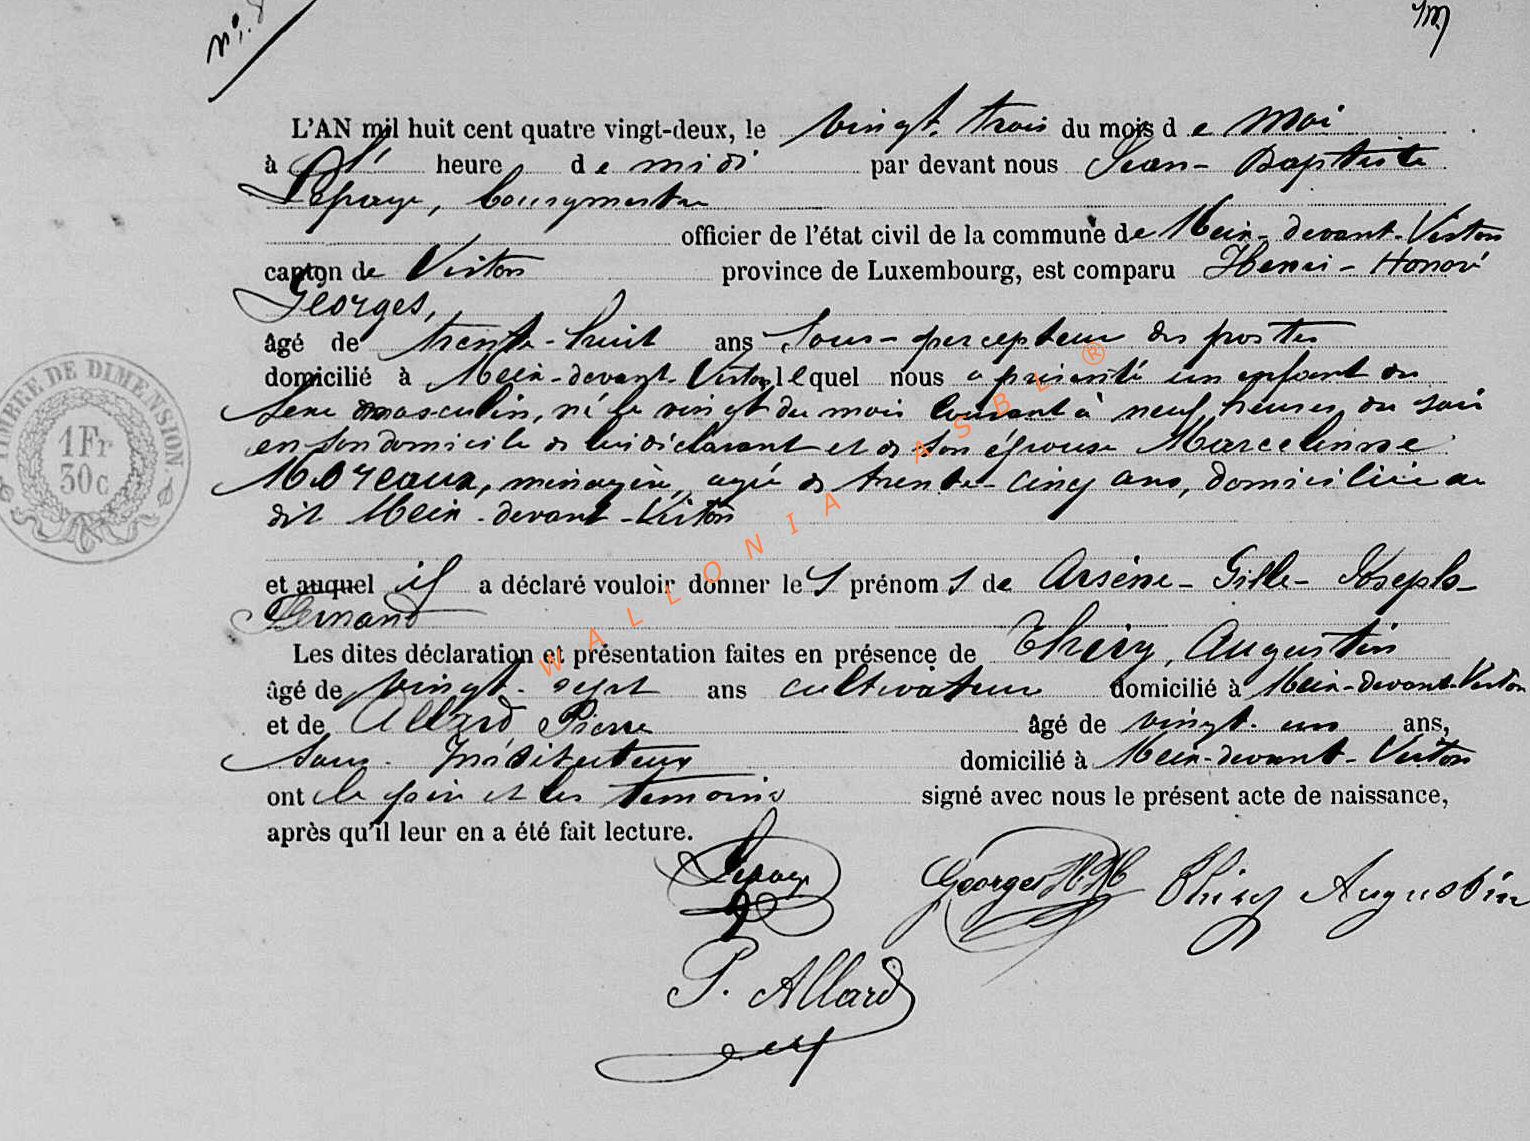 N°. 8
L'AN mil huit cent quatre vingt-deux, le vingt-trois du mois de Mai
à l' heure de midi par devant nous Jean-Baptiste
Lepage, bourgmestre
officier de l'état civil de la commune de Meix-devant-Virton
canton de Virton province de Luxembourg, est comparu Henri-Honoré
Georges,
âgé de trente-huit ans Sous-percepteur des postes
domicilié à Meix-devant-Virton, lequel nous a présenté un enfant du
sexe masculin, né le vingt du mois courant à neuf heures du soir
en son domicile de lui déclarant et de son épouse Marcelinne
Moreaux, ménagère, agée de trente-cinq ans, domiciliée au
dit Meix-devant-Virton
et auquel il a déclaré vouloir donner les prénoms de Arsène-Gille-Joseph-
Fernand
Les dites déclaration et présentation faites en présence de Thiry, Augustin
âgé de vingt-sept ans cultivateur domicilié à Meix-devant-Virton
et de Allard Pierre âgé de vingt-un ans,
Sous-Instituteur domicilié à Meix-devant-Virton
ont le père et les témoins signé avec nous le présent acte de naissance,
après qu'il leur en a été fait lecture.
Lepage Georges HH Thiry Augustin
P. Allard
TIMBRE DE DIMENSION.
1 Fr
30c
WALLONIA ASBL ®